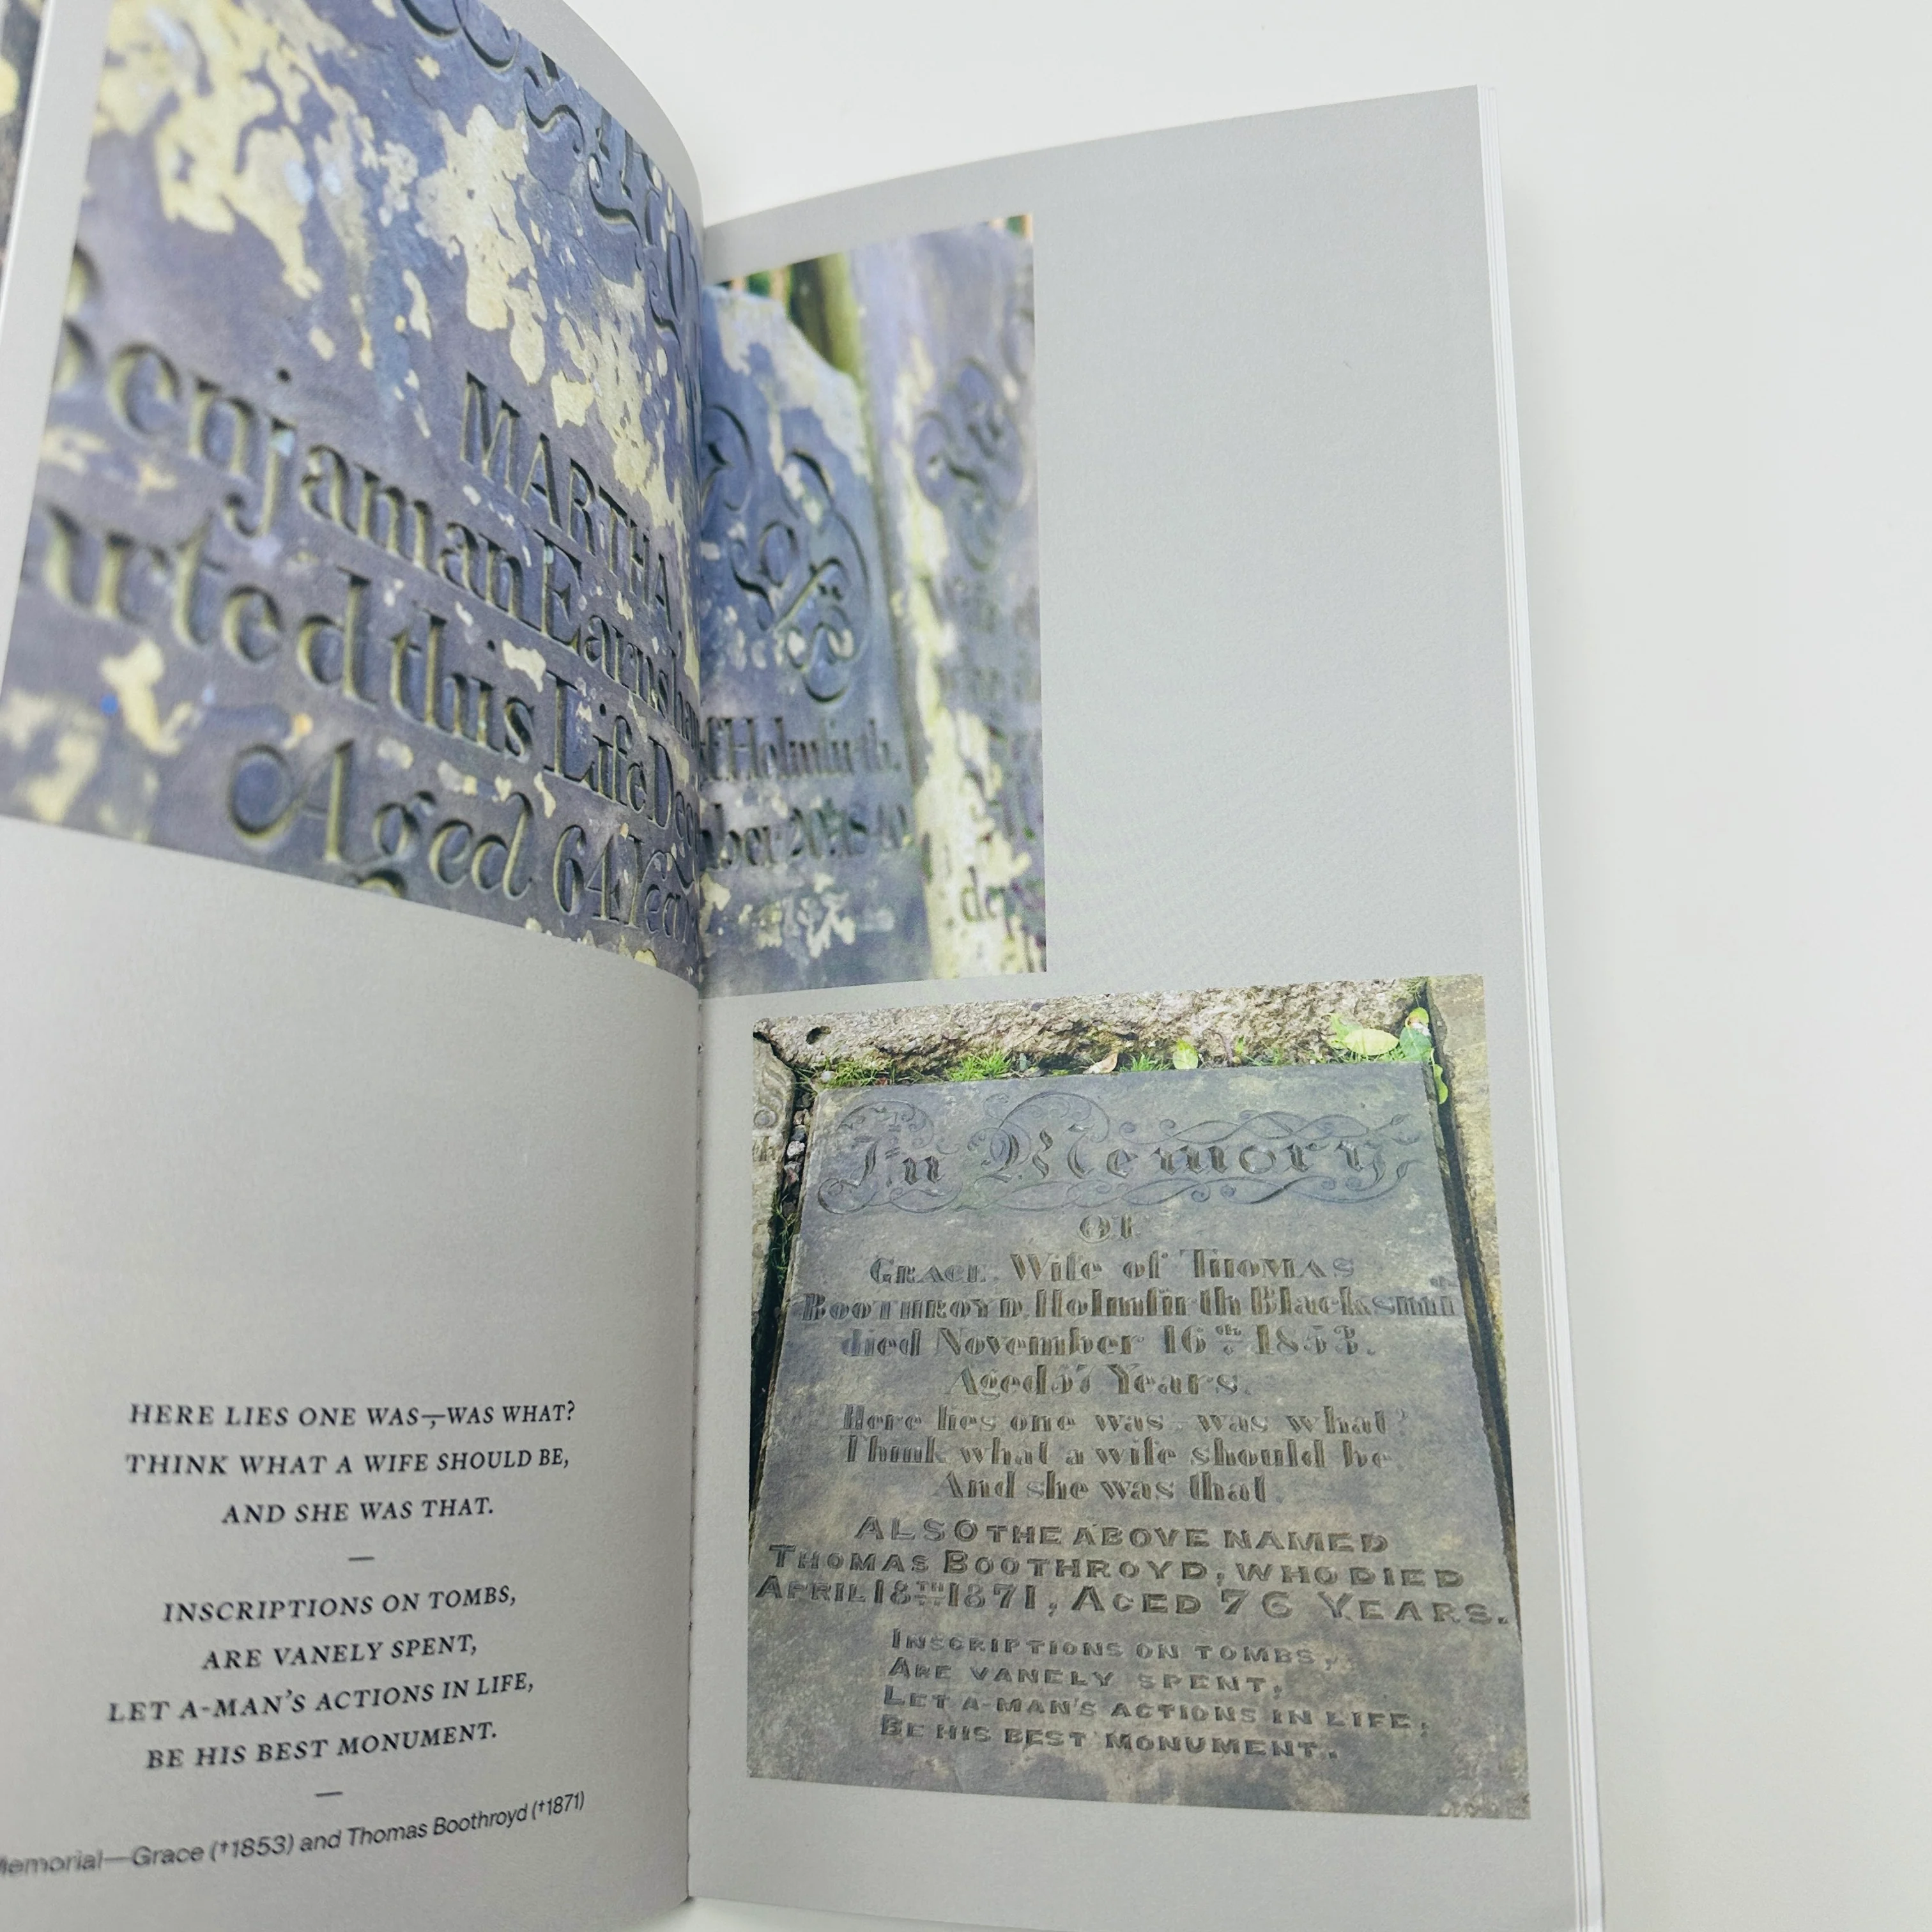 MARTHA,
enjaman Earnsha
f Holmfirth,
arted this Life Dec
mber 20th 1840
Aged 64 Year
de
HERE LIES ONE WAS—,WAS WHAT?
THINK WHAT A WIFE SHOULD BE,
AND SHE WAS THAT.
—
INSCRIPTIONS ON TOMBS,
ARE VANELY SPENT,
LET A-MAN'S ACTIONS IN LIFE,
BE HIS BEST MONUMENT.
—
Memorial—Grace (†1853) and Thomas Boothroyd (†1871)
In Memory
OF
GRACE, Wife of THOMAS
BOOTHROYD, Holmfirth Blacksmith
died November 16th 1853.
Aged 57 Years.
Here lies one was, was what?
Think what a wife should be
And she was that.
ALSO THE ABOVE NAMED
THOMAS BOOTHROYD, WHO DIED
APRIL 18TH 1871, AGED 76 YEARS.
INSCRIPTIONS ON TOMBS,
ARE VANELY SPENT,
LET A-MAN'S ACTIONS IN LIFE,
BE HIS BEST MONUMENT.